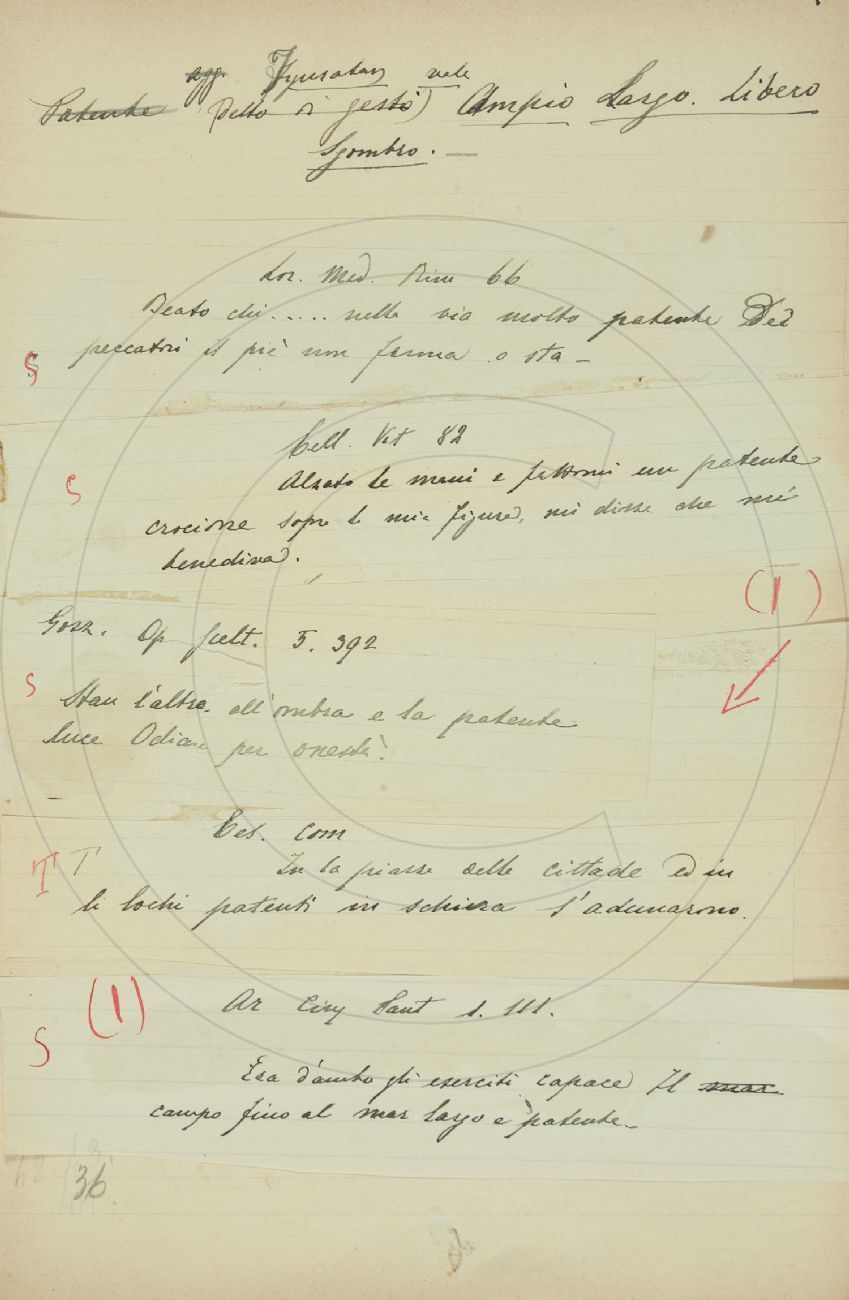 agg. Figuratam vale
Patente (Detto di gesto) Ampio Largo. Libero
Sgombro. —
Lor. Med. Rim 66
Beato chi..... nella via molto patente Dei
S peccatori il piè non ferma o sta —
Cell. Vit 82
S Alzato le mani e fattomi un patente
crocione sopra la mia figura, mi disse che mi
benediva.
(1)
Gozz. Op scelt. 5. 392
S Stan l'altre all'ombra e la patente
luce Odian per onestà.
Tes. com
T T In la piazze delle cittade ed in
li lochi patenti in schiera s'adunarono.
(1) Ar Cinq Cant 1. 111.
S Era d'ambo gli eserciti capace Il mar
campo fino al mar largo e patente —
36.